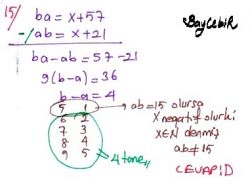 15/ ba = x+57
BayCebir
-/ab = x+21
ba-ab = 57-21
9(b-a) = 36
b-a = 4
5 1 → ab=15 olursa
6 2 x negatif olurki
7 3 x∈N denmiş
8 4 ab≠15
9 5 4 tane,,
CEVAP:D